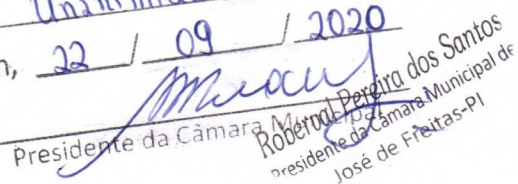 m, 22 / 09 / 2020
Presidente da Câmara Municipal
Roberval Pereira dos Santos
Presidente da Câmara Municipal de
José de Freitas-PI